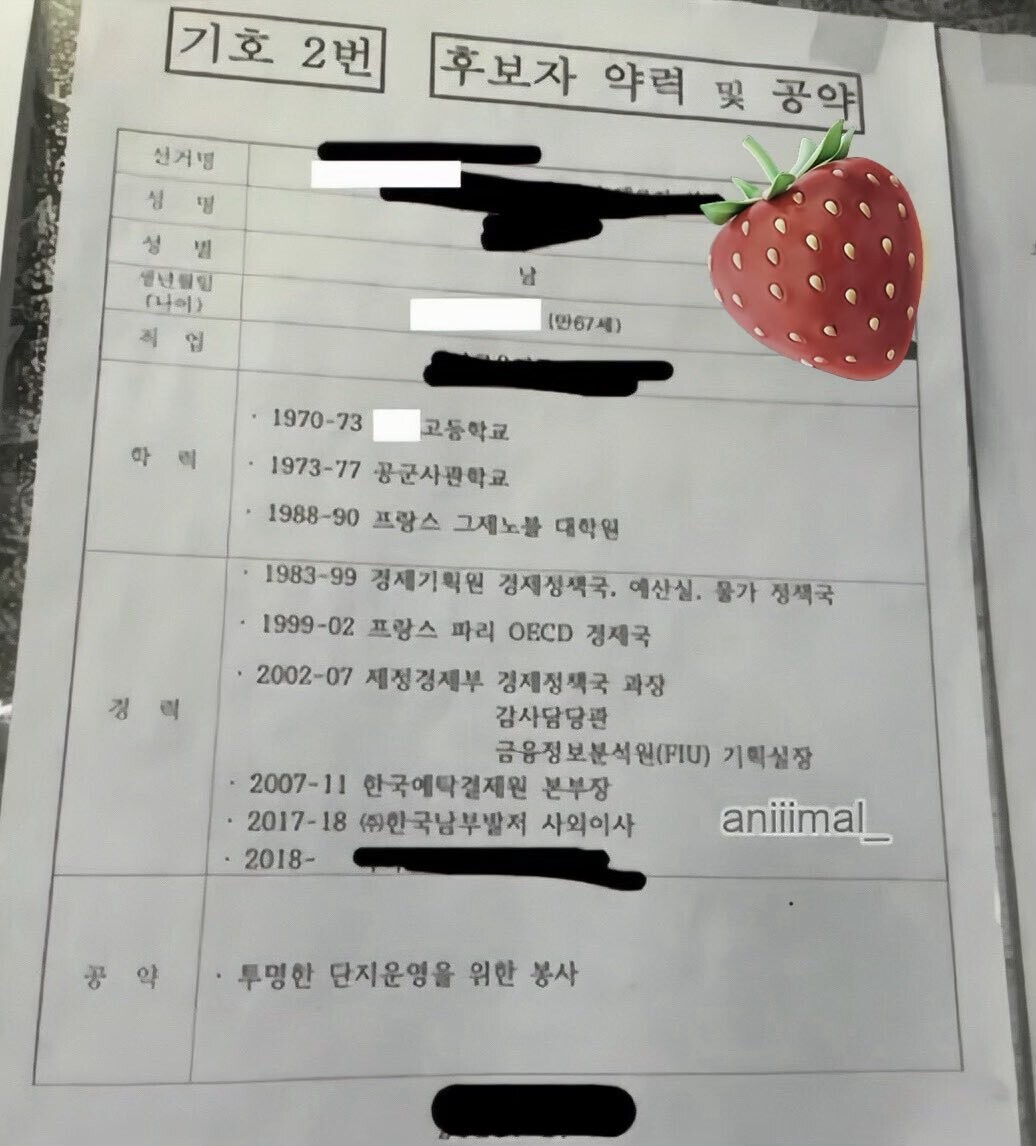 기호 2번
후보자 약력 및 공약
선거명
성 명
성 별 남
생년월일
(나이) (만67세)
직 업
학 력
· 1970-73 고등학교
· 1973-77 공군사관학교
· 1988-90 프랑스 그제노블 대학원
경 력
· 1983-99 경제기획원 경제정책국, 예산실, 물가 정책국
· 1999-02 프랑스 파리 OECD 경제국
· 2002-07 재정경제부 경제정책국 과장
감사담당관
금융정보분석원(FIU) 기획실장
· 2007-11 한국예탁결제원 본부장
· 2017-18 ㈜한국남부발저 사외이사
· 2018-
aniiimal_
공 약
· 투명한 단지운영을 위한 봉사